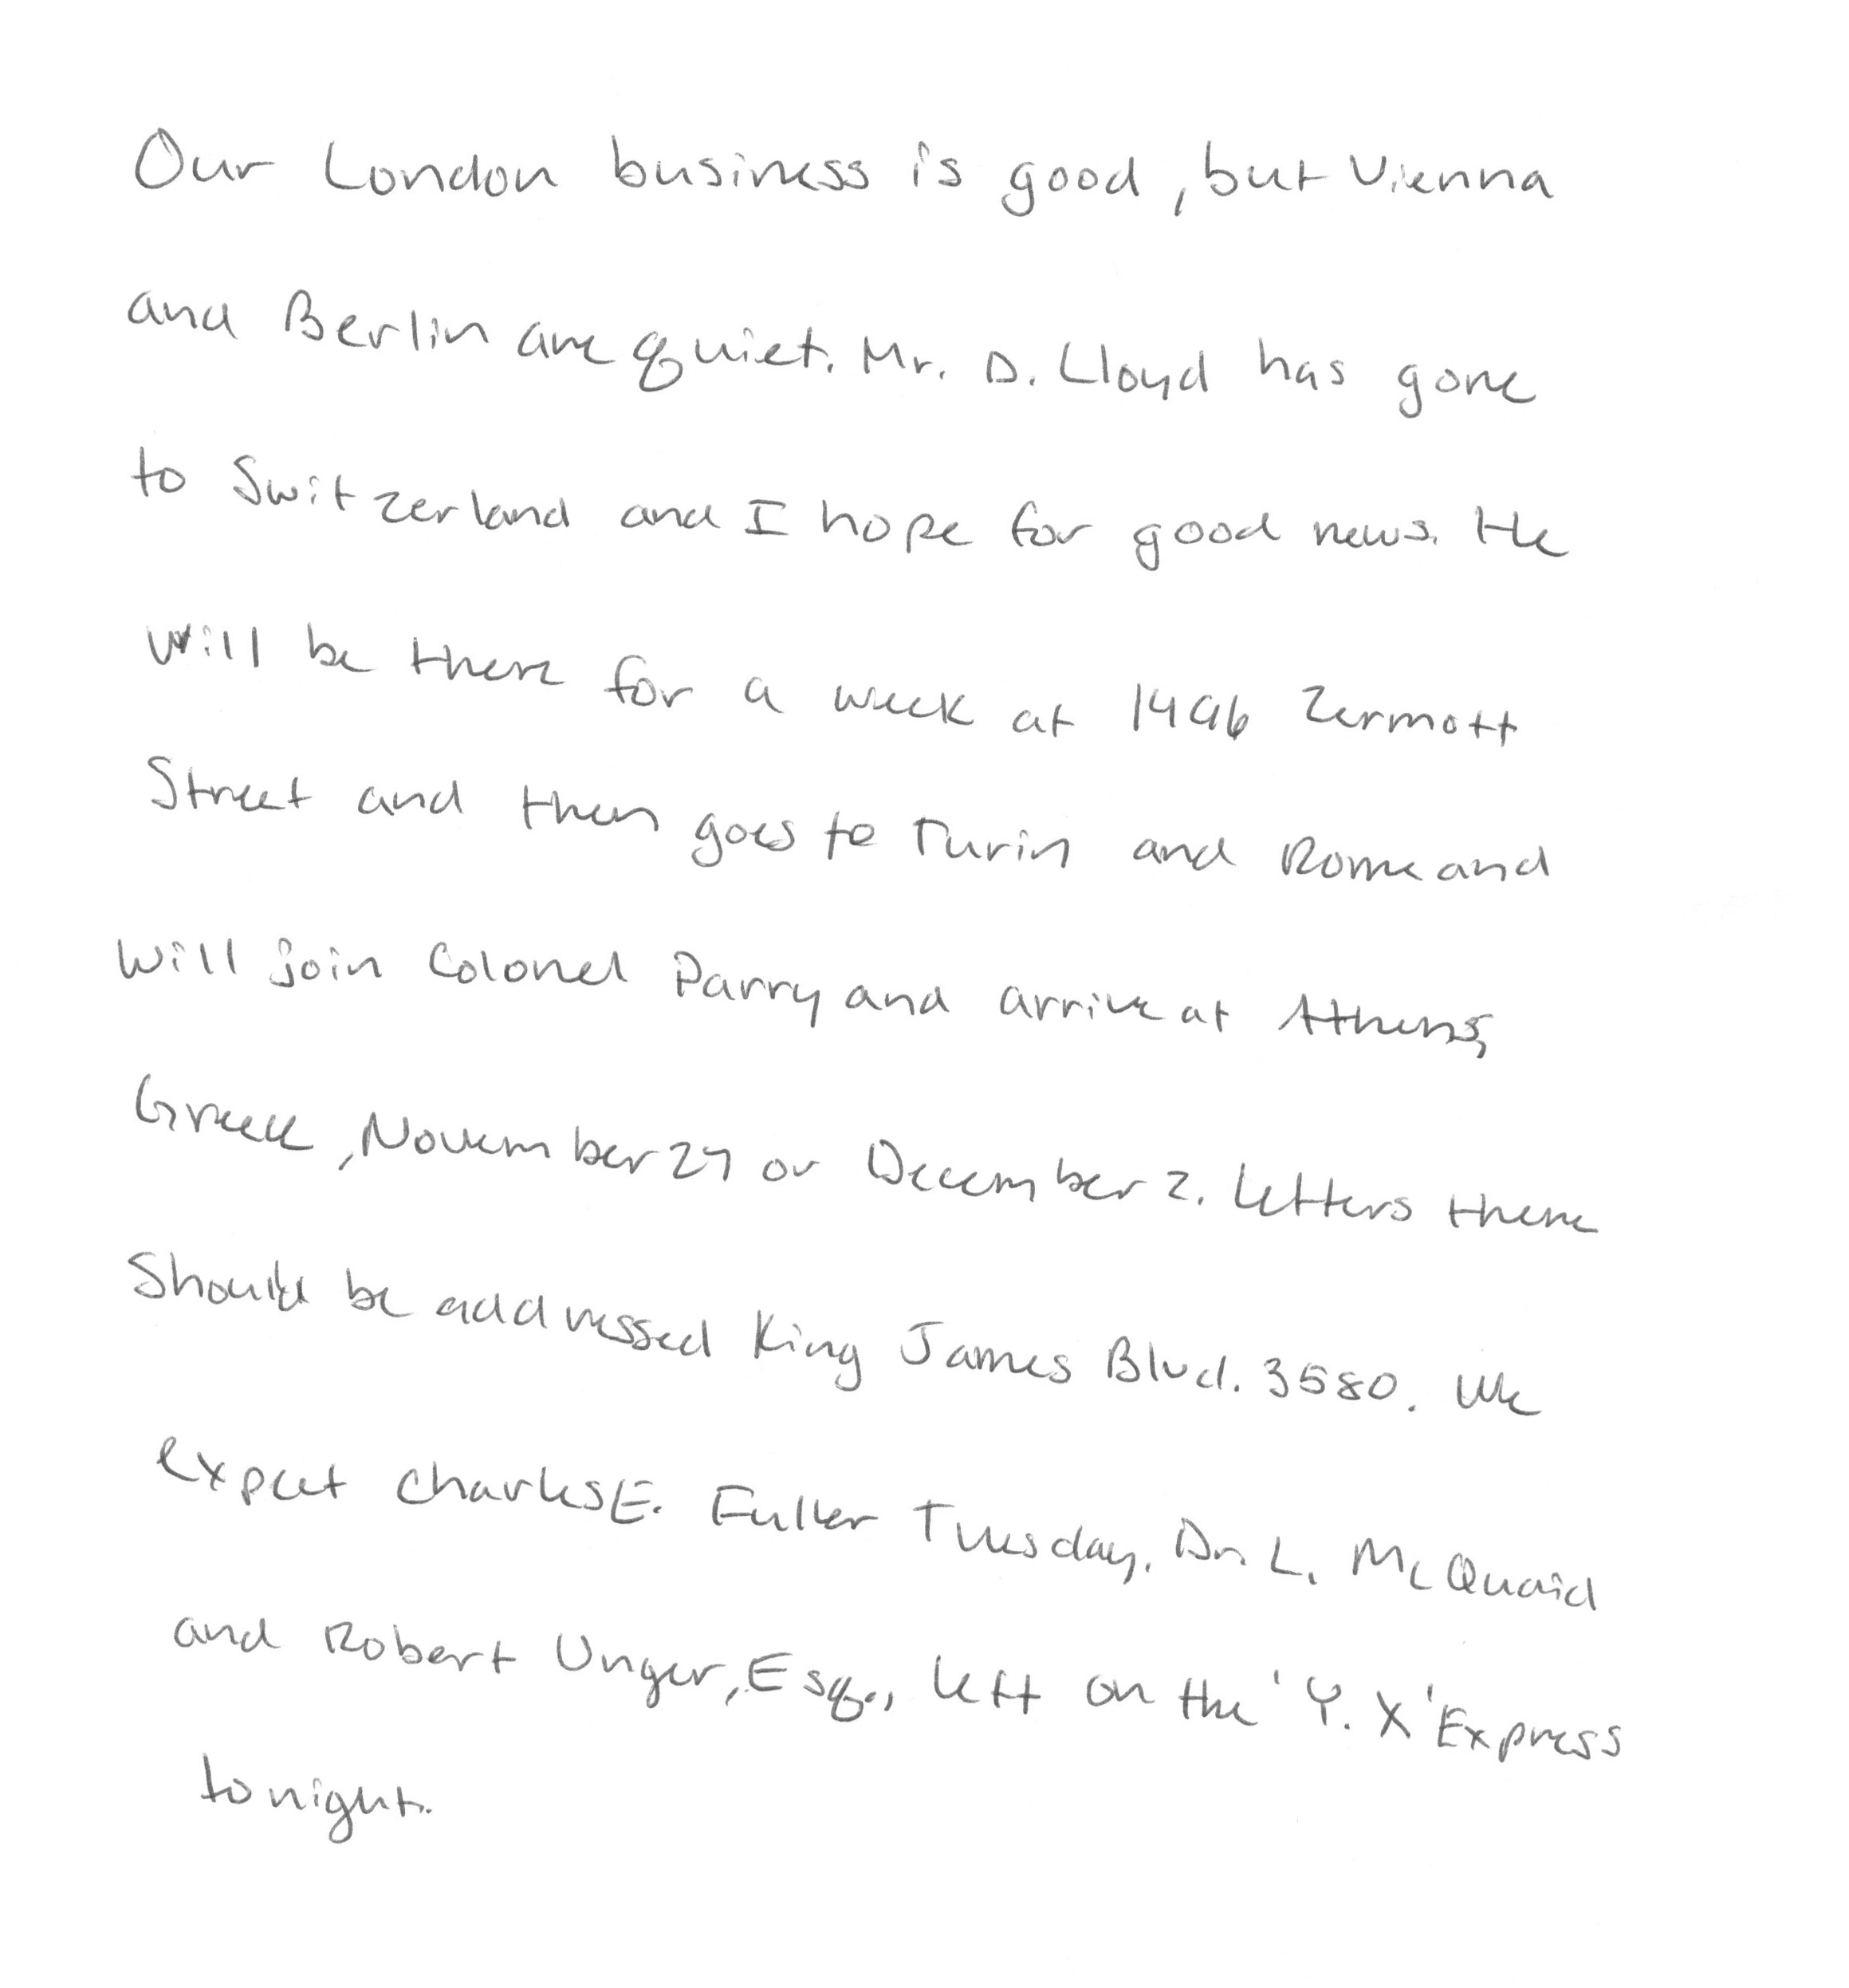 Our London business is good, but Vienna
and Berlin are quiet. Mr. D. Lloyd has gone
to Switzerland and I hope for good news. He
will be there for a week at 1496 Zermott
Street and then goes to Turin and Rome and
will join Colonel Parry and arrive at Athens,
Greece, November 27 or December 2. Letters there
should be addressed King James Blvd. 3580. We
expect Charles E. Fuller Tuesday. Dr. L. McQuaid
and Robert Unger, Esq., left on the 'Y. X' Express
tonight.